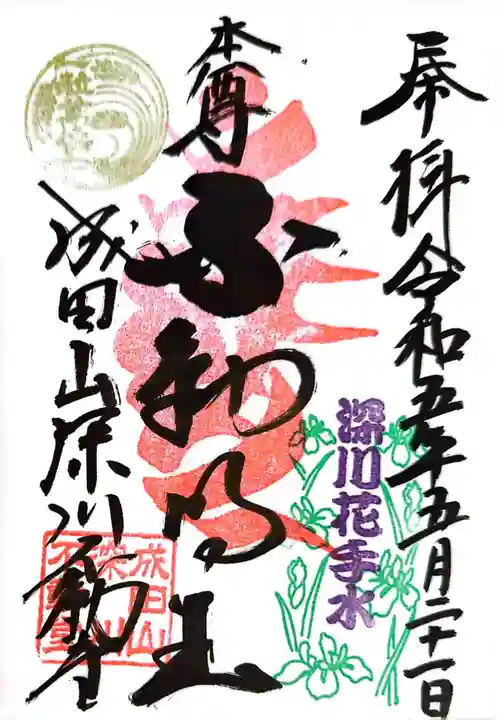 奉拝 令和五年五月二十一日
深川花手水
本尊
不動明王
成田山深川不動寺
成田山
深川
不動堂